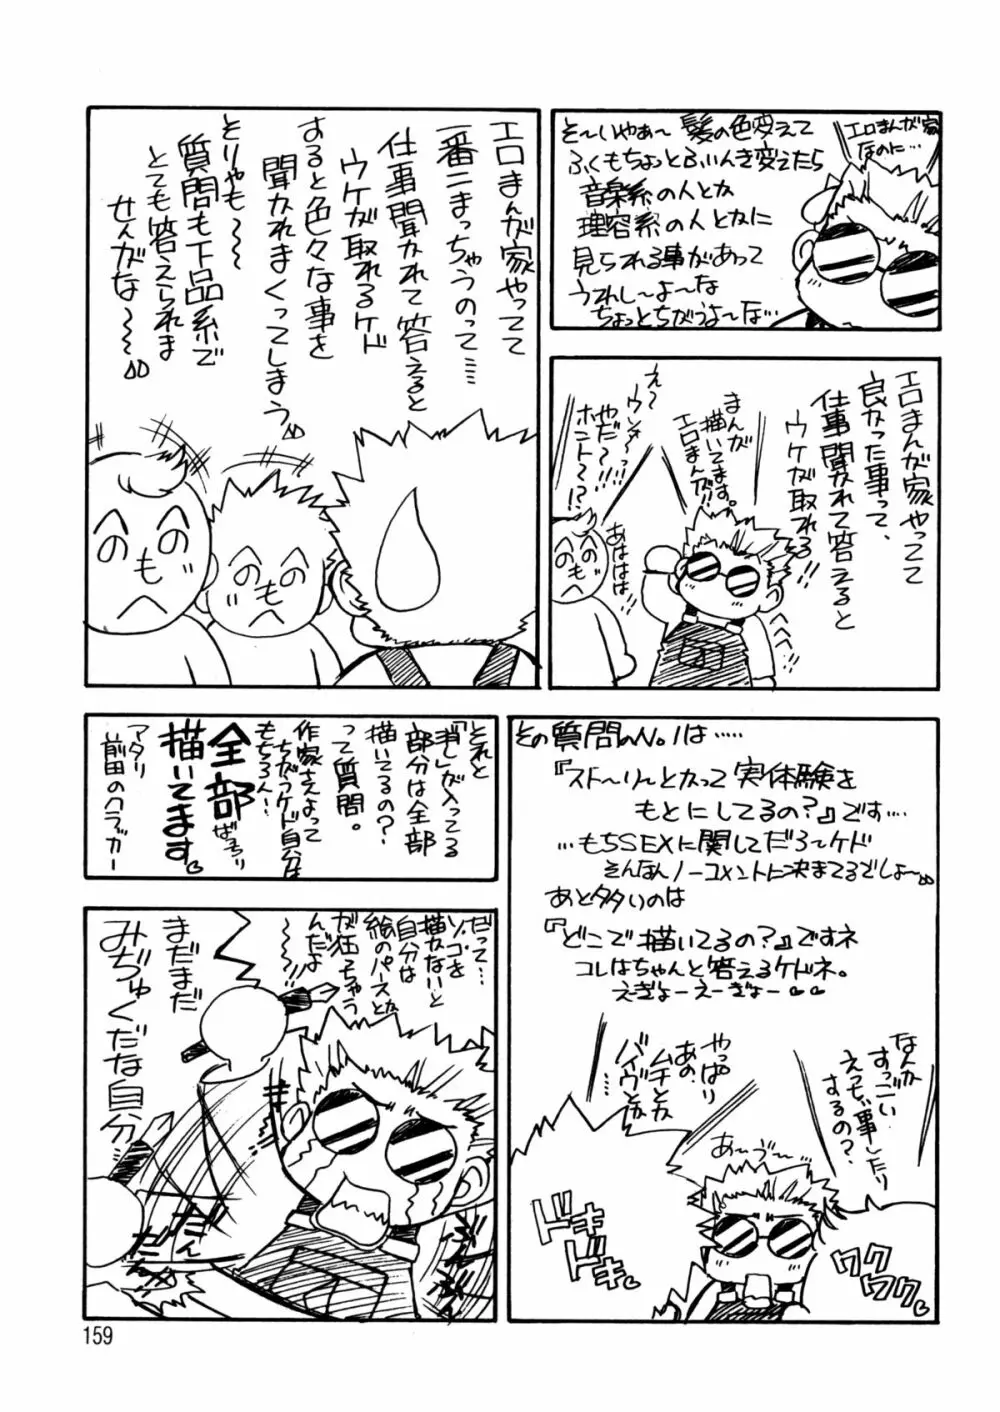 そ〜いやぁ〜髪の色変えて
ふくもちょっとふいんき変えたら
音楽系の人とか
理容系の人とかに
見られる事があって
うれし〜よ〜な
ちょっとちがうよ〜な…
エロまんが家
なのに…
エロまんが家やってて
良かった事って、
仕事聞かれて答えると
ウケが取れる!!
まんが
描いてます。
エロまんが!!
え〜
ウソ〜っ!!
やだ〜!!
ホント〜!?
あははは
エロまんが家やってて
一番こまっちゃうのって……
仕事聞かれて答えると
ウケが取れるケド
すると色々な事を
聞かれまくってしまう
そりゃも〜〜
質問も下品系で
とても答えられま
せんがな〜〜
のの
も
へ
のの
も
へ
その質問のNo.1は……
『スト〜リ〜とかって実体験を
もとにしてるの?』です…
…もちSEXに関してだろ〜ケド
そんなんノーコメントに決まてるでしょ〜
あと多いのは
『どこで描いてるの?』ですネ
コレはちゃんと答えるケドネ。
えーぎょーえーぎょー
なんか
すっごい
えっちい事したり
するの?
やっぱり
あの、
ムチとか
バイヴとか
あ〜う〜
ドキ
ドキ
ワク
ワク
それと
「消し」が入ってる
部分は全部
描いてるの?
って質問。
作家さんよって
ちがうケド自分は
もちろん!
全部ばっちり
描いてます。
アタリ
前田のクラッカー
だって…
ソコを
描かないと
自分は
絵のパースとか
が狂っちゃう
んだよ
〜〜
まだまだ
みじゅくだな自分
だん
だん
159